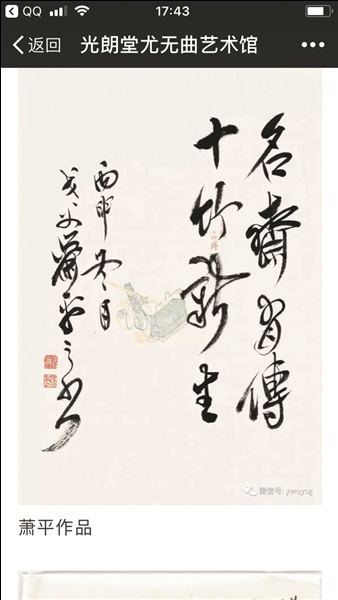 QQ 17:43
返回 光朗堂尤无曲艺术馆
名齋有傳
十竹新生
丙申冬月
戈父蕭平之书
微信号: ywqysg
萧平作品